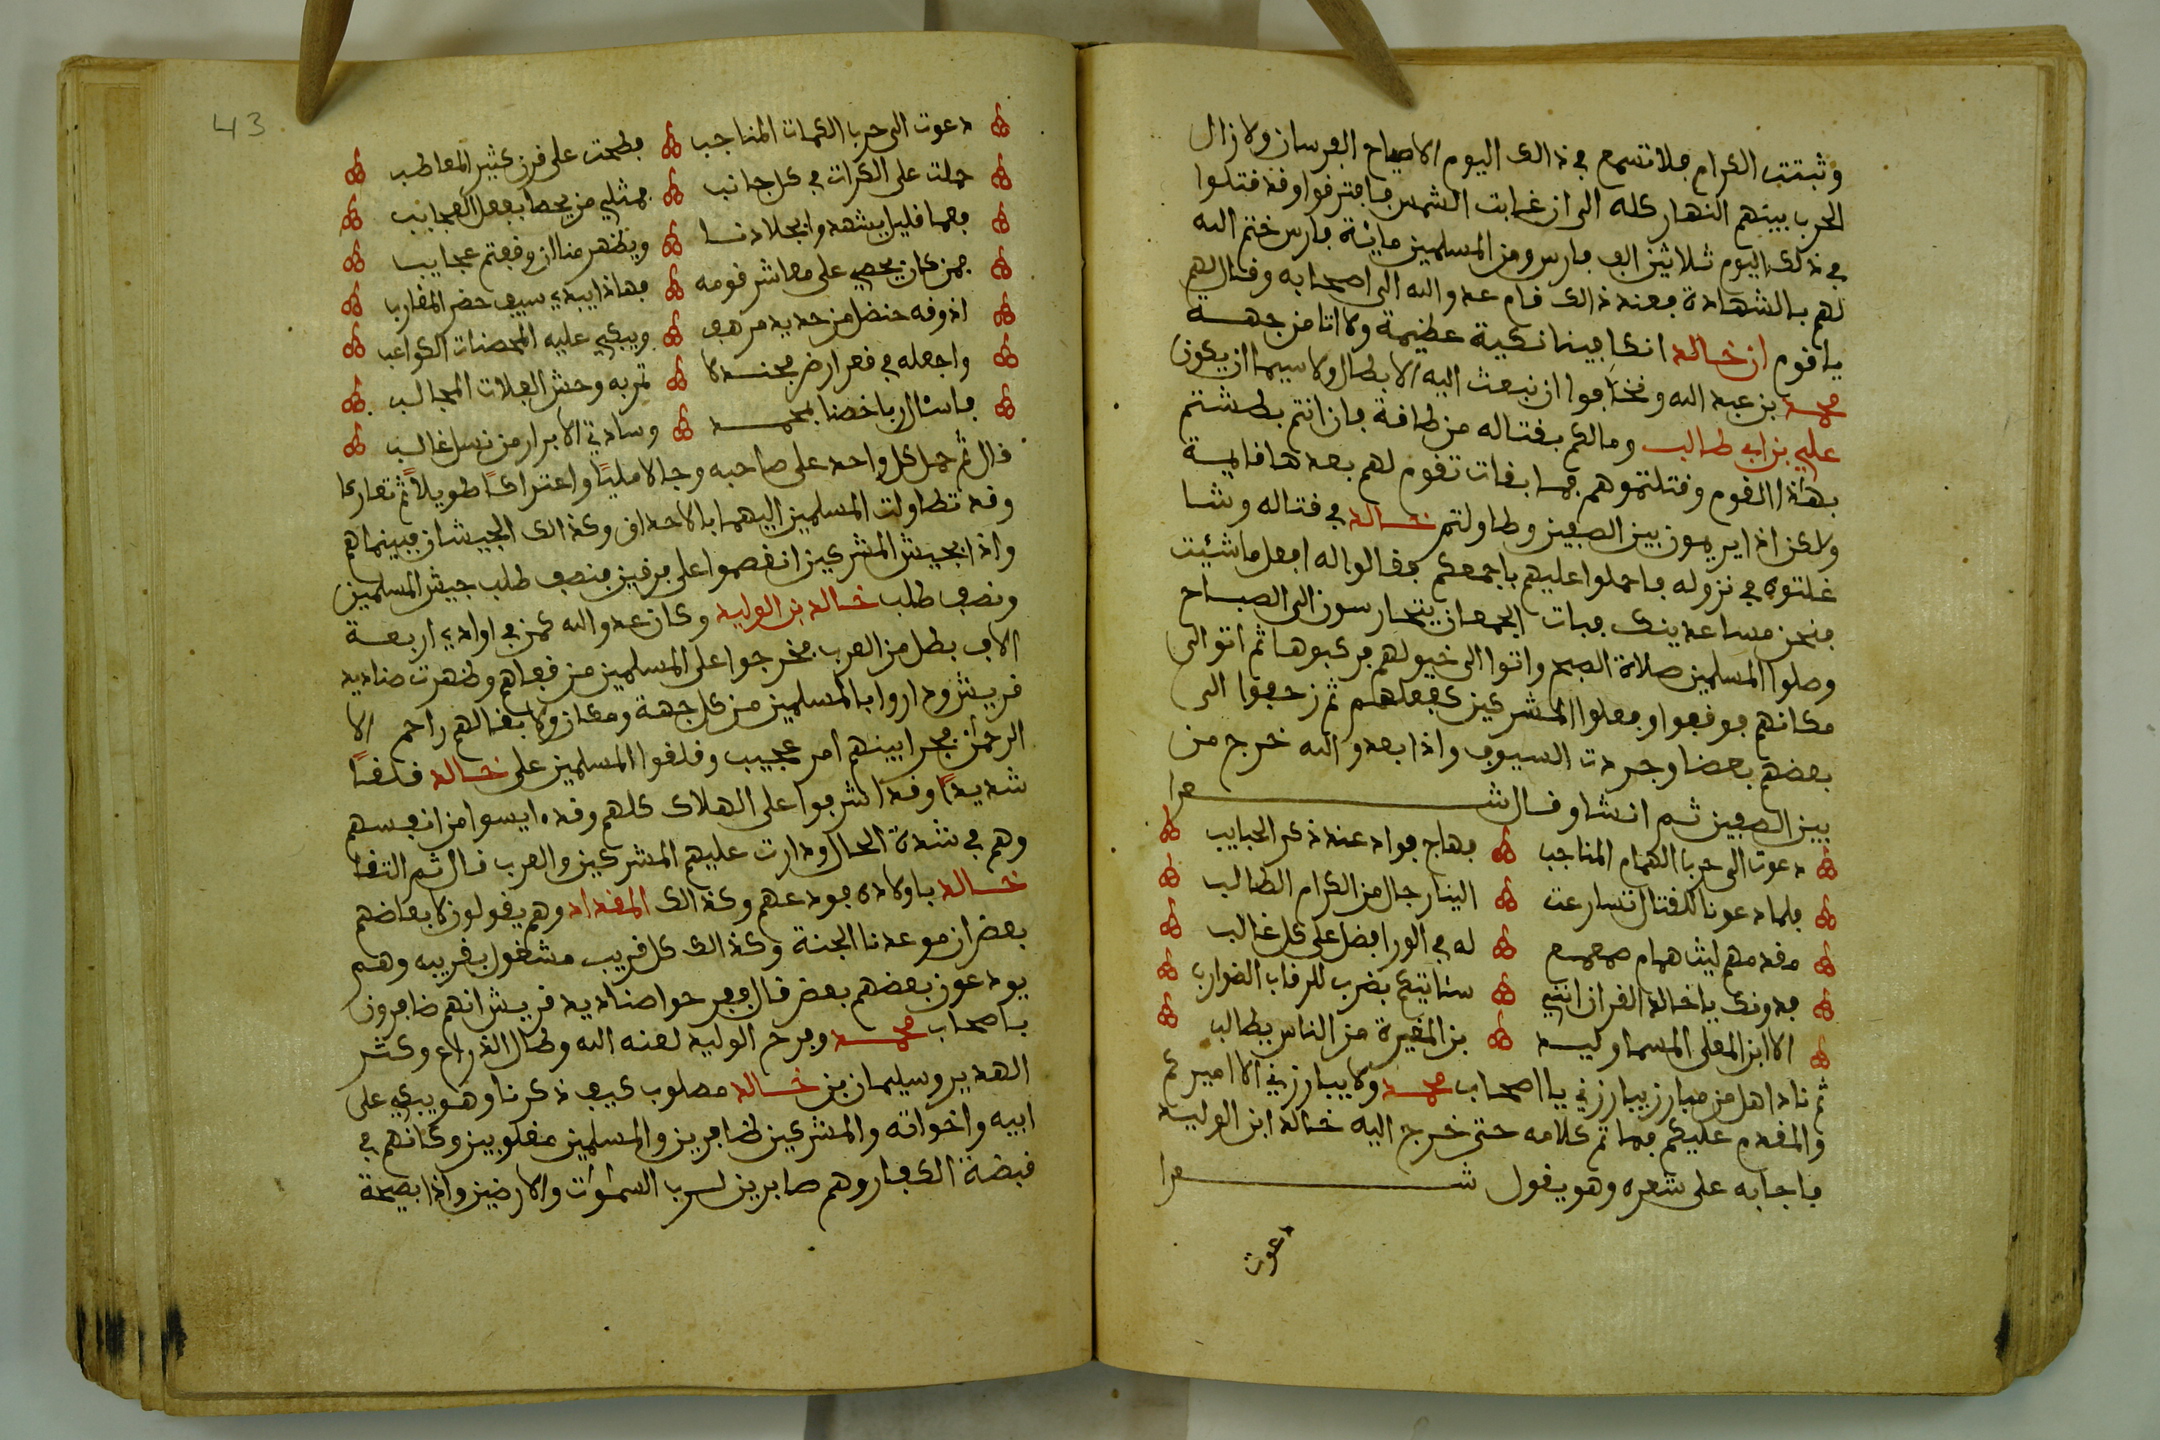 وثبتت الكرام فلا تسمع في ذالك اليوم الا صياح الفرسان ولا زال
الحرب بينهم النهار كله الى ان غابت الشمس فافترفوا وقد قتلوا
في ذلك اليوم ثلاثين الف فارس ومن المسلمين ماية فارس ختم الله
لهم بالشهادة فعند ذالك قام عدو الله الى اصحابه وقال لهم
يا قوم ان خالد انكا فينا نكية عظيمة ولا اتا من جهة
محمد بن عبد الله ونخافوا ان نبعث اليه الابطال ولا سيما ان يكون
علي بن ابي طالب ومالكم بقتاله من طاقة فان انتم بطشتم
بهذا القوم وقتلتموهم فما بقات تقوم لهم بعدها قايمة
ولكن اذا ايريمون بين الصفين وطاولتم خالد في قتاله وشا
غلتوه في نزوله فاحملوا عليهم باجمعكم فقالوا له افعل ما شئيت
فنحن مساعدينك فبات الجمعان يتحارسون الى الصباح
وصلوا المسلمين صلاة الصبح واتوا الى خيولهم فركبوها ثم اتوا الى
مكانهم فوقفوا وفعلوا المشركين كفعلهم ثم زحفوا الى
بعضهم بعضا وجردت السيوف واذا بعدو الله خرج من
بين الصفين ثم انشا وقال شعرا
دعوت الى حربا الهمام المناجب فهاج فواد عند ذكر الحبايب
فلما دعونا للقتال تسارعت الينا رجال من الكرام الطالب
فقدمهم ليث همام صمصع له في الورا فضل على كل غالب
فدونك يا خالد القران انني ستاتيكم بضرب للرقاب الضوارب
الا ابن المعلى المسما وليد بن المغيرة من الناس يطالب
ثم نادا هل من مبارز يبارزني يا اصحاب محمد ولا يبارزني الا اميركم
والمقدم عليكم فما تم كلامه حتى خرج اليه خالد ابن الوليد
فاجابه على شعره وهو يقول شعرا
دعوت
43
دعوت الى حربا الكمات المناجب فطحت على قرن كثير المعاطب
حملت على الكرات في كل جانب فمثلي من يحصا بفعل العجايب
فعما قليل يشهدوا بجلادنا ويظهر منا ان وقعتم عجايبا
فمن كان يحصي على معاشر قومه فهاذا يبدي سيف حضر المقارب
اذوقه حنضل من حديد مرهف ويبكي عليه المحصنات الكواعب
واجعله في قعر ارض مجندلا تمر به وحش الفلات المجالب
فاسال ربا خصنا بمحمد وسادتي الابرار من نسل غالب
قال ثم حمل كل واحد على صاحبه وجالا مليا واعتراكا طويلا ثم تعاركا
وقد تطاولت المسلمين اليهما بالاحداق وكذالك الجيشان فبينما هم
واذا بجيش المشركين انقصموا على فرقين فنصف طلب جيش المسلمين
ونصف طلب خالد بن الوليد وكان عدو الله كمن في اوادي اربعة
الاف بطل من العرب فخرجوا على المسلمين من قفاهم وظهرت صناديد
قريش وداروا بالمسلمين من كل جهة ومكان ولا بقا لهم راحم الا
الرحمن فجرا بينهم امر عجيب وقلقوا المسلمين على خالد قلقا
شديدا وقد اشرفوا على الهلاك كلهم وقد ايسوا من انفسهم
وهم في شدة الحال ودارت عليهم المشركين والعرب قال ثم التقا
خالد باولاده فودعهم وكذالك المقداد وهم يقولون لا بعاضهم
بعض ان موعدنا الجنة وكذالك كل قريب مشغول بقريبه وهم
يودعون بعضهم بعض قال ففرحوا صناديد قريش انهم ضافرون
باصحاب محمد وفرح الوليد لعنه الله وطال الذراع وكثر
الهدير وسليمان بن خالد مصلوب كيف ذكرنا وهو يبكي على
ابيه واخواته والمشركين ظافرين والمسلمين مغلوبين وكانهم في
قبضة الكفار وهم صابرين لرب السموات والارضين واذا بصيحة